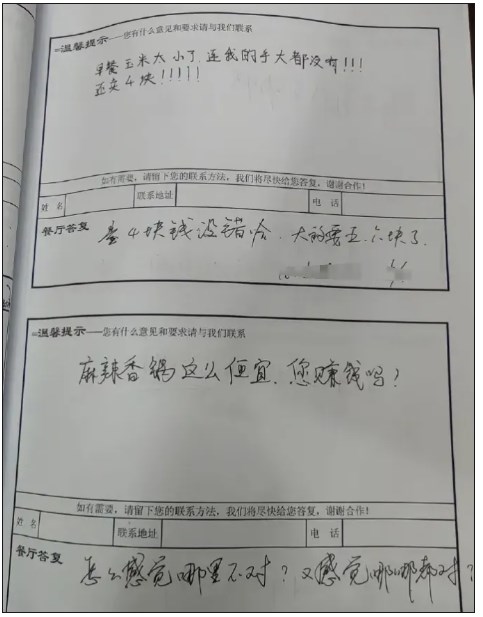 温馨提示——您有什么意见和要求请与我们联系
早餐玉米太小了,连我的手大都没有!!!
还卖4块!!!!!
如有需要,请留下您的联系方法,我们将尽快给您答复,谢谢合作!
姓名 联系地址 电话
餐厅答复 卖4块钱没错哈.大的要五.六块了.
温馨提示——您有什么意见和要求请与我们联系
麻辣香锅这么便宜.您赚钱吗?
如有需要,请留下您的联系方法,我们将尽快给您答复,谢谢合作!
姓名 联系地址 电话
餐厅答复 怎么感觉哪里不对?又感觉哪哪都对?